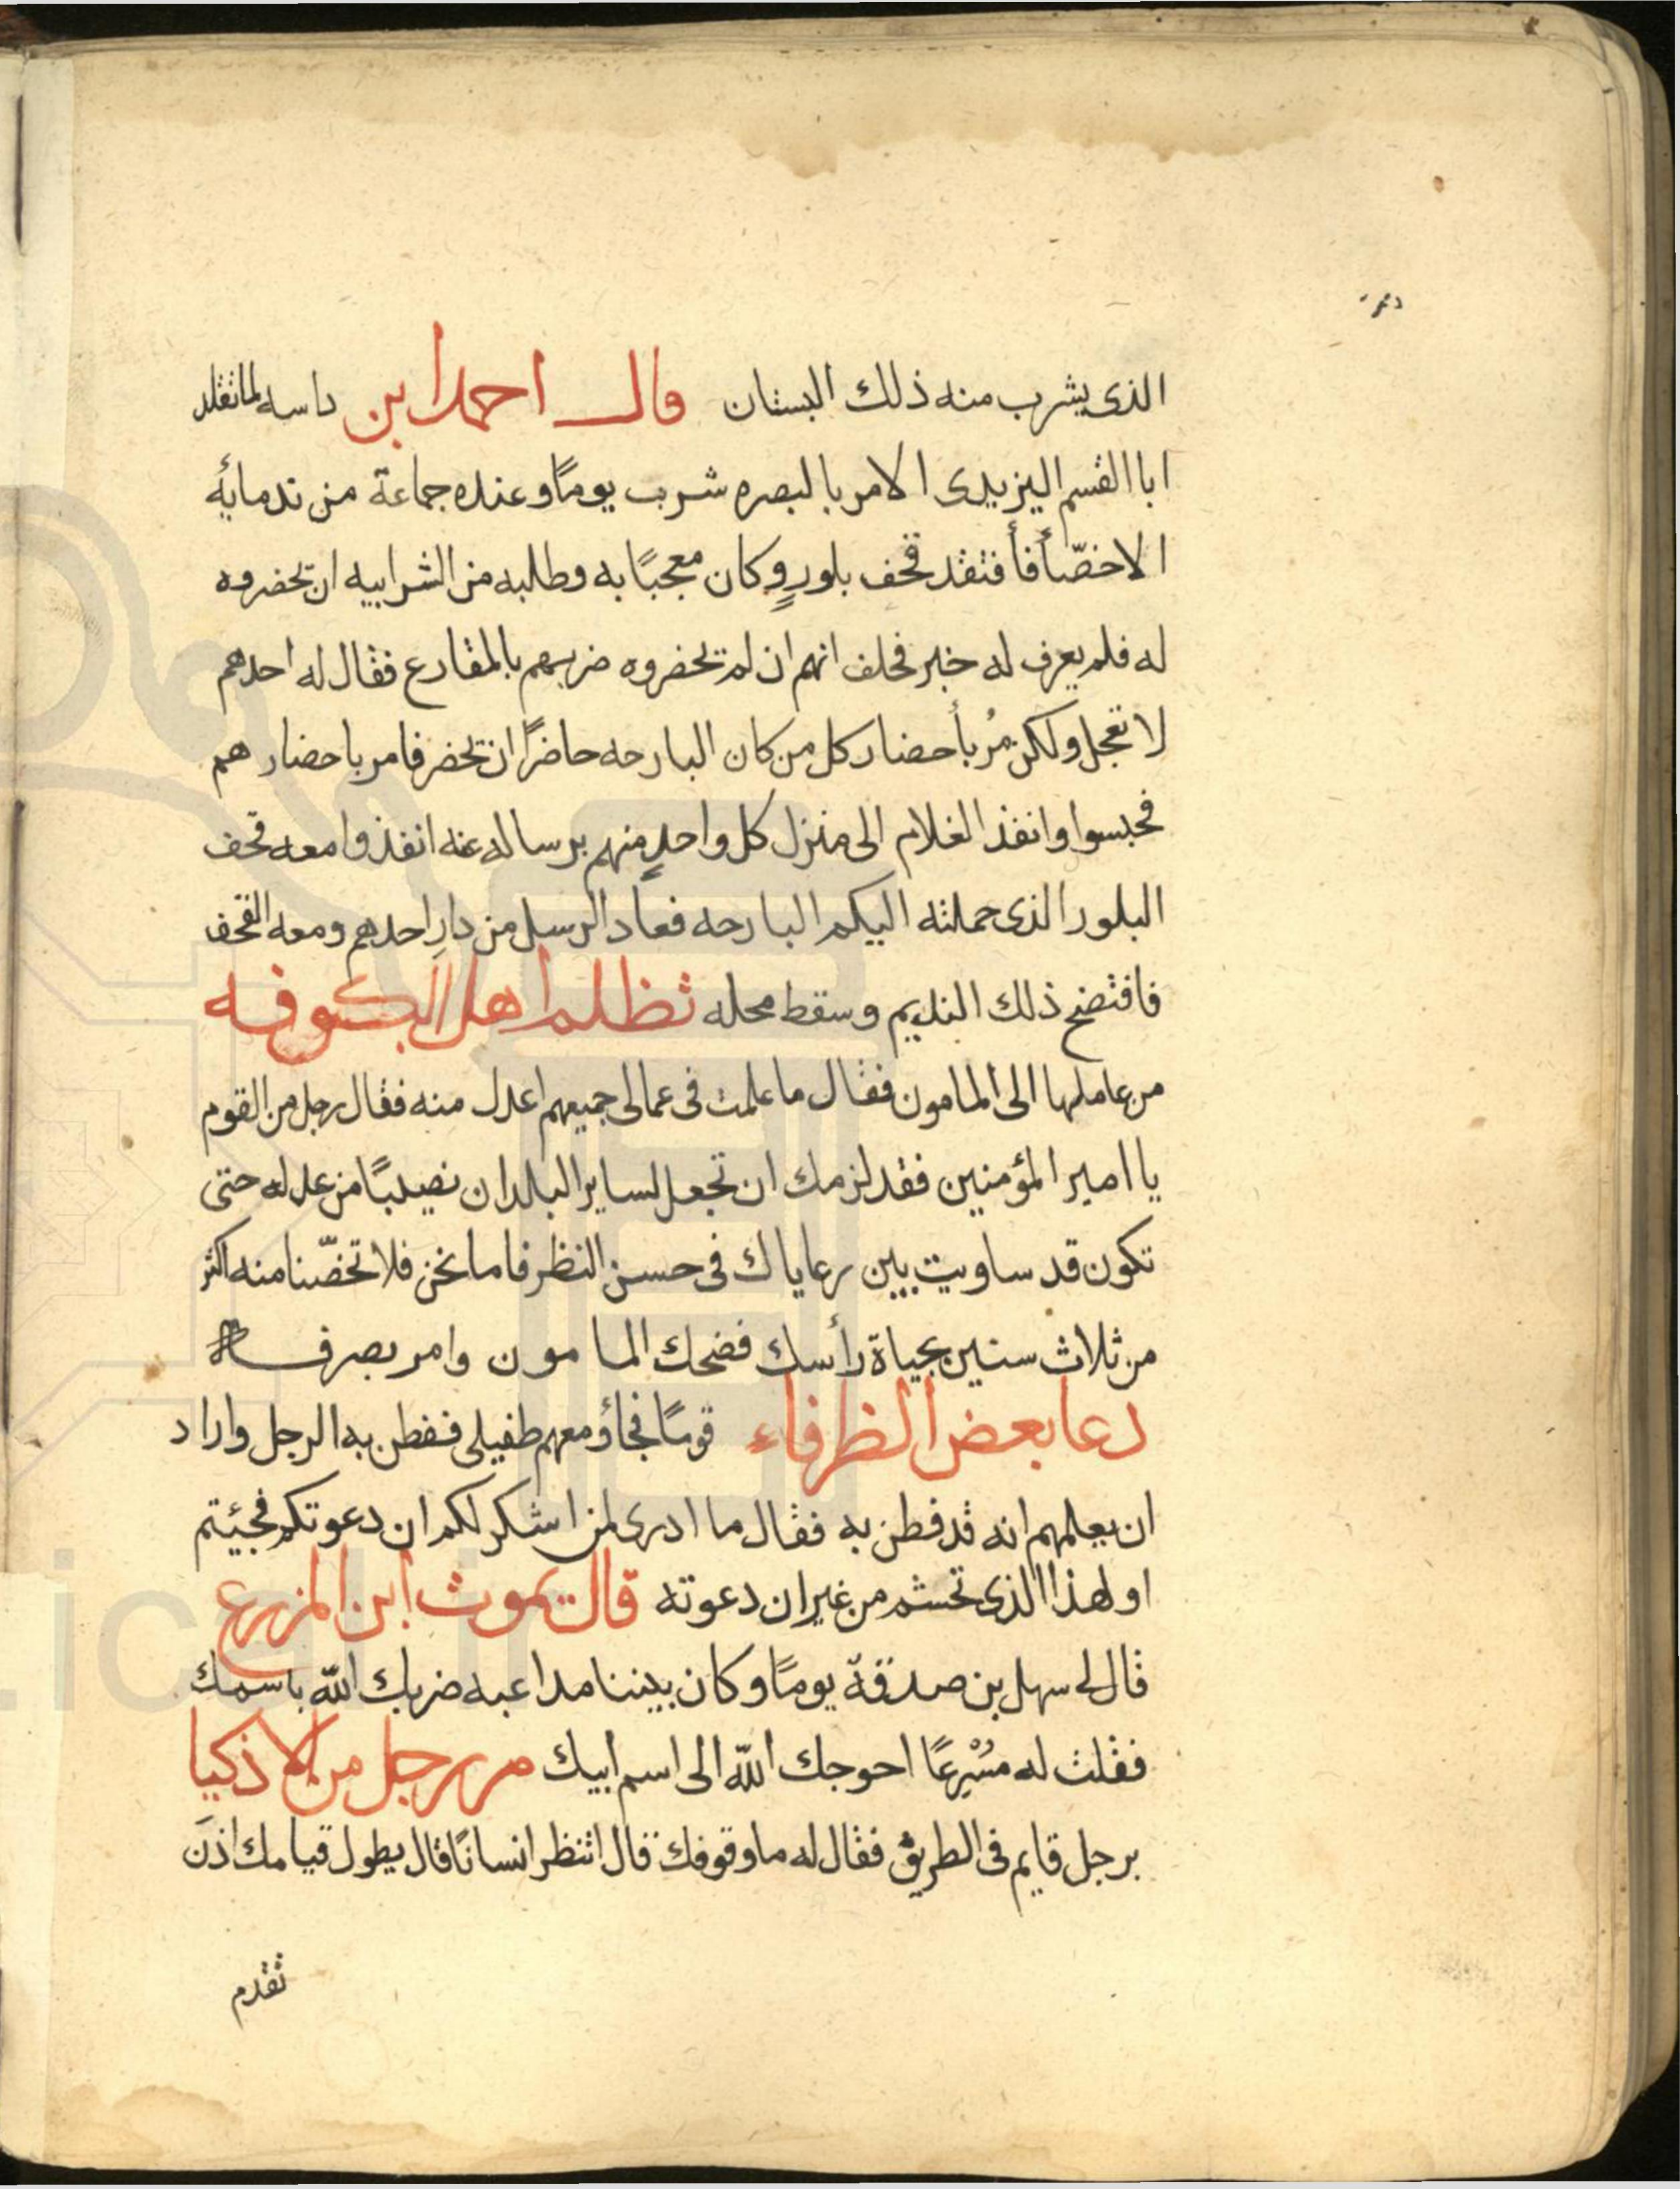 الذى يشرب منه ذلك البستان قال احمد ابن داسه لما تقلد
ابا القسم اليزيدى الامر بالبصره شرب يومًا وعنده جماعة من ندمايه
الاخصّأ فأفتقد قحف بلورٍ وكان معجبًا به وطلبه من الشرابيه ان يحضروه
له فلم يعرف له خبر فحلف انهم ان لم يحضروه ضربهم بالمقارع فقال له احدهم
لا تعجل ولكن مُر بأحضار كل من كان البارحه حاضرًا ان يحضر فامر باحضارهم
فحبسوا وانفذ الغلام الى منزل كل واحدٍ منهم برساله عنه انفذوا معه قحف
البلور الذى حملته اليكم البارحه فعاد الرسل من دارِ احدهم ومعه القحف
فافتضح ذلك النديم وسقط محله تظلم اهل الكوفه
من عاملها الى المامون فقال ما علمت فى عمالى جميعهم اعدل منه فقال رجل من القوم
يا امير المؤمنين فقد لزمك ان تجعل لساير البلدان نصيبًا من عدله حتى
تكون قد ساويت بين رعاياك فى حسن النظر فاما نحن فلا تخصّنا منه اكثر
من ثلاث سنين بحياة رأسك فضحك المامون وامر بصرفه
دعا بعض الظرفاء قومًا فجاؤ ومعهم طفيلى ففطن به الرجل واراد
ان يعلمهم انه قد فطن به فقال ما ادرى لمن اشكر لكم ان دعوتكم فجيئتم
او لهذا الذى تحشم من غير ان دعوته قال يموت ابن المزرع
قال لى سهل بن صدقة يومًا وكان بيننا مداعبه ضربك اللّه باسمك
فقلت له مُسْرِعًا احوجك اللّه الى اسم ابيك مر رجل من الاذكيا
برجل قايم فى الطريق فقال له ما وقوفك قال انتظر انسانًا قال يطول قيامك اذَن
تقدم